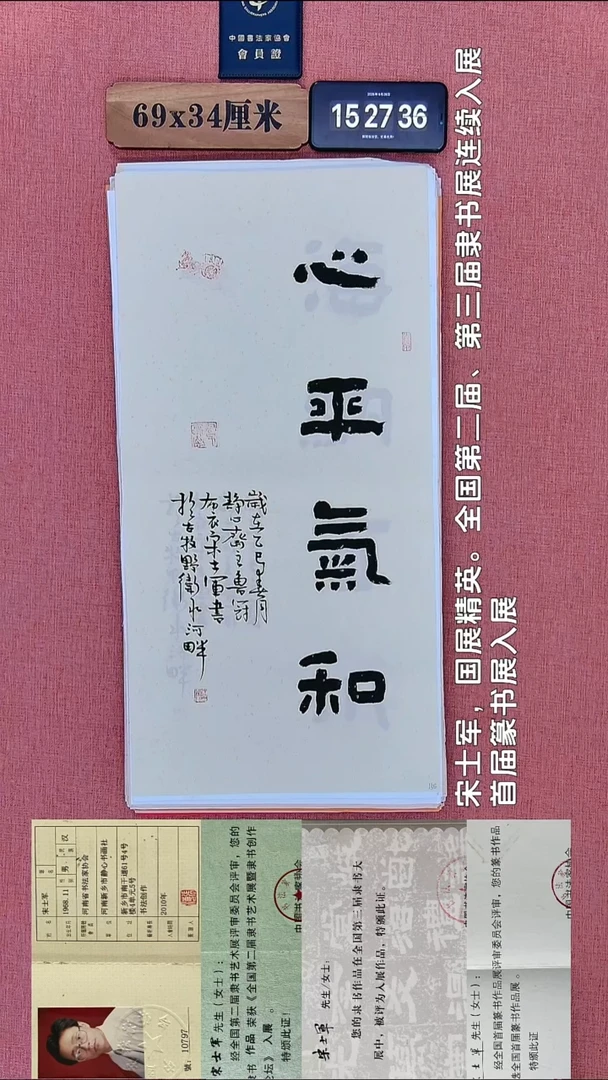 中國書法家協會
會員證
69x34厘米
15 27 36
心平氣和
歲在乙巳春月
静心齋主魯冠
布衣宋士軍書
於古牧野衛水河畔
宋士军，国展精英。全国第二届、第三届隶书展连续入展
首届篆书展入展
宋士军
1968.11 男 汉
河南省书法家协会
河南新乡市静心书画社
新乡市南干道61号4号
楼4单元5号
书法创作
2010年
號：10797
宋士军 先生（女士）：
经全国第二届隶书艺术展评审委员会评审，您的
隶书 作品 荣获《全国第二届隶书艺术展暨隶书创作
论坛》 入展 。
特颁此证！
宋士军 先生/女士：
您的隶书作品在全国第三届隶书大
展中，被评为入展作品，特颁此证。
士军 先生（女士）：
经全国首届篆书作品展评审委员会评审，您的篆书作品
全国首届篆书作品展 。
特颁此证